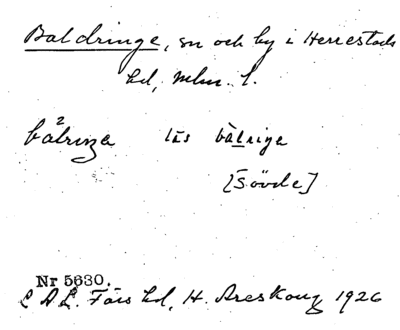 Baldringe, sn och by i Herrestads
hd, Mlm. l.
bälringa läs bàlrige
[Sövde]
Nr 5630.
L A L. Färs hd, H. Areskoug 1926